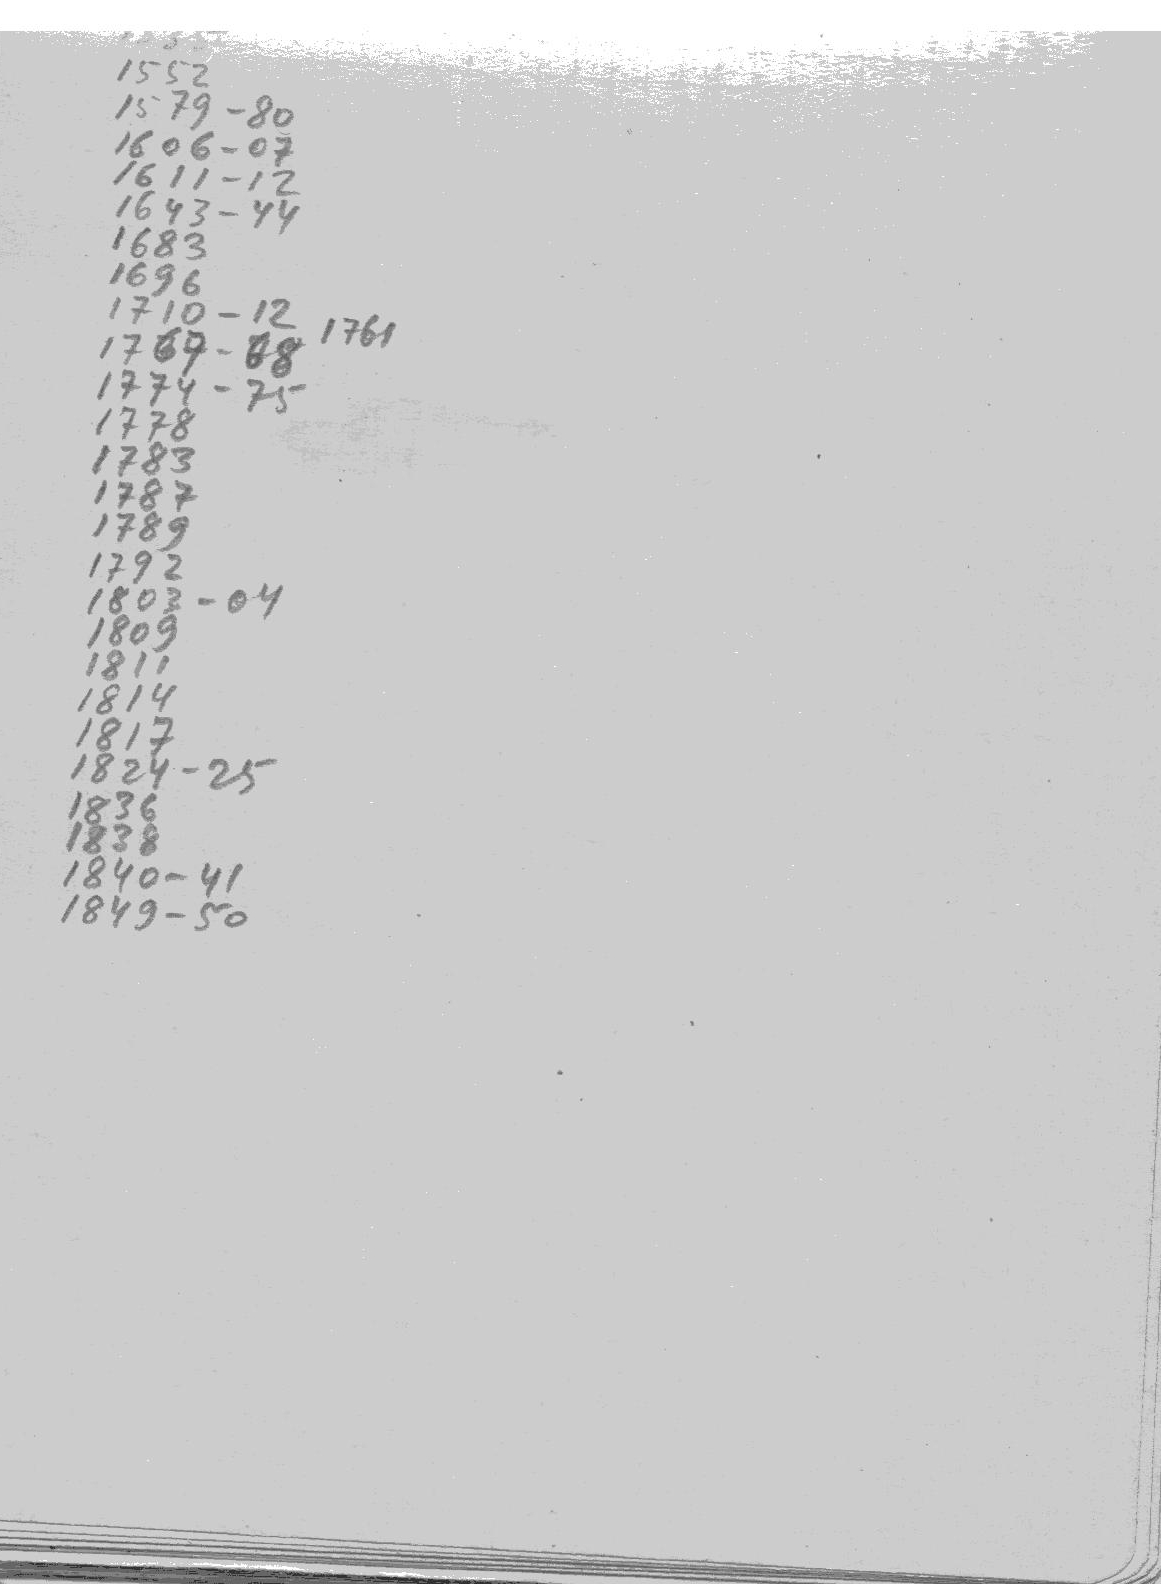 1552
1579-80
1606-07
1611-12
1643-44
1683
1696
1710-12
1767-68 1761
1774-75
1778
1783
1787
1789
1792
1803-04
1809
1811
1814
1817
1824-25
1836
1838
1840-41
1849-50